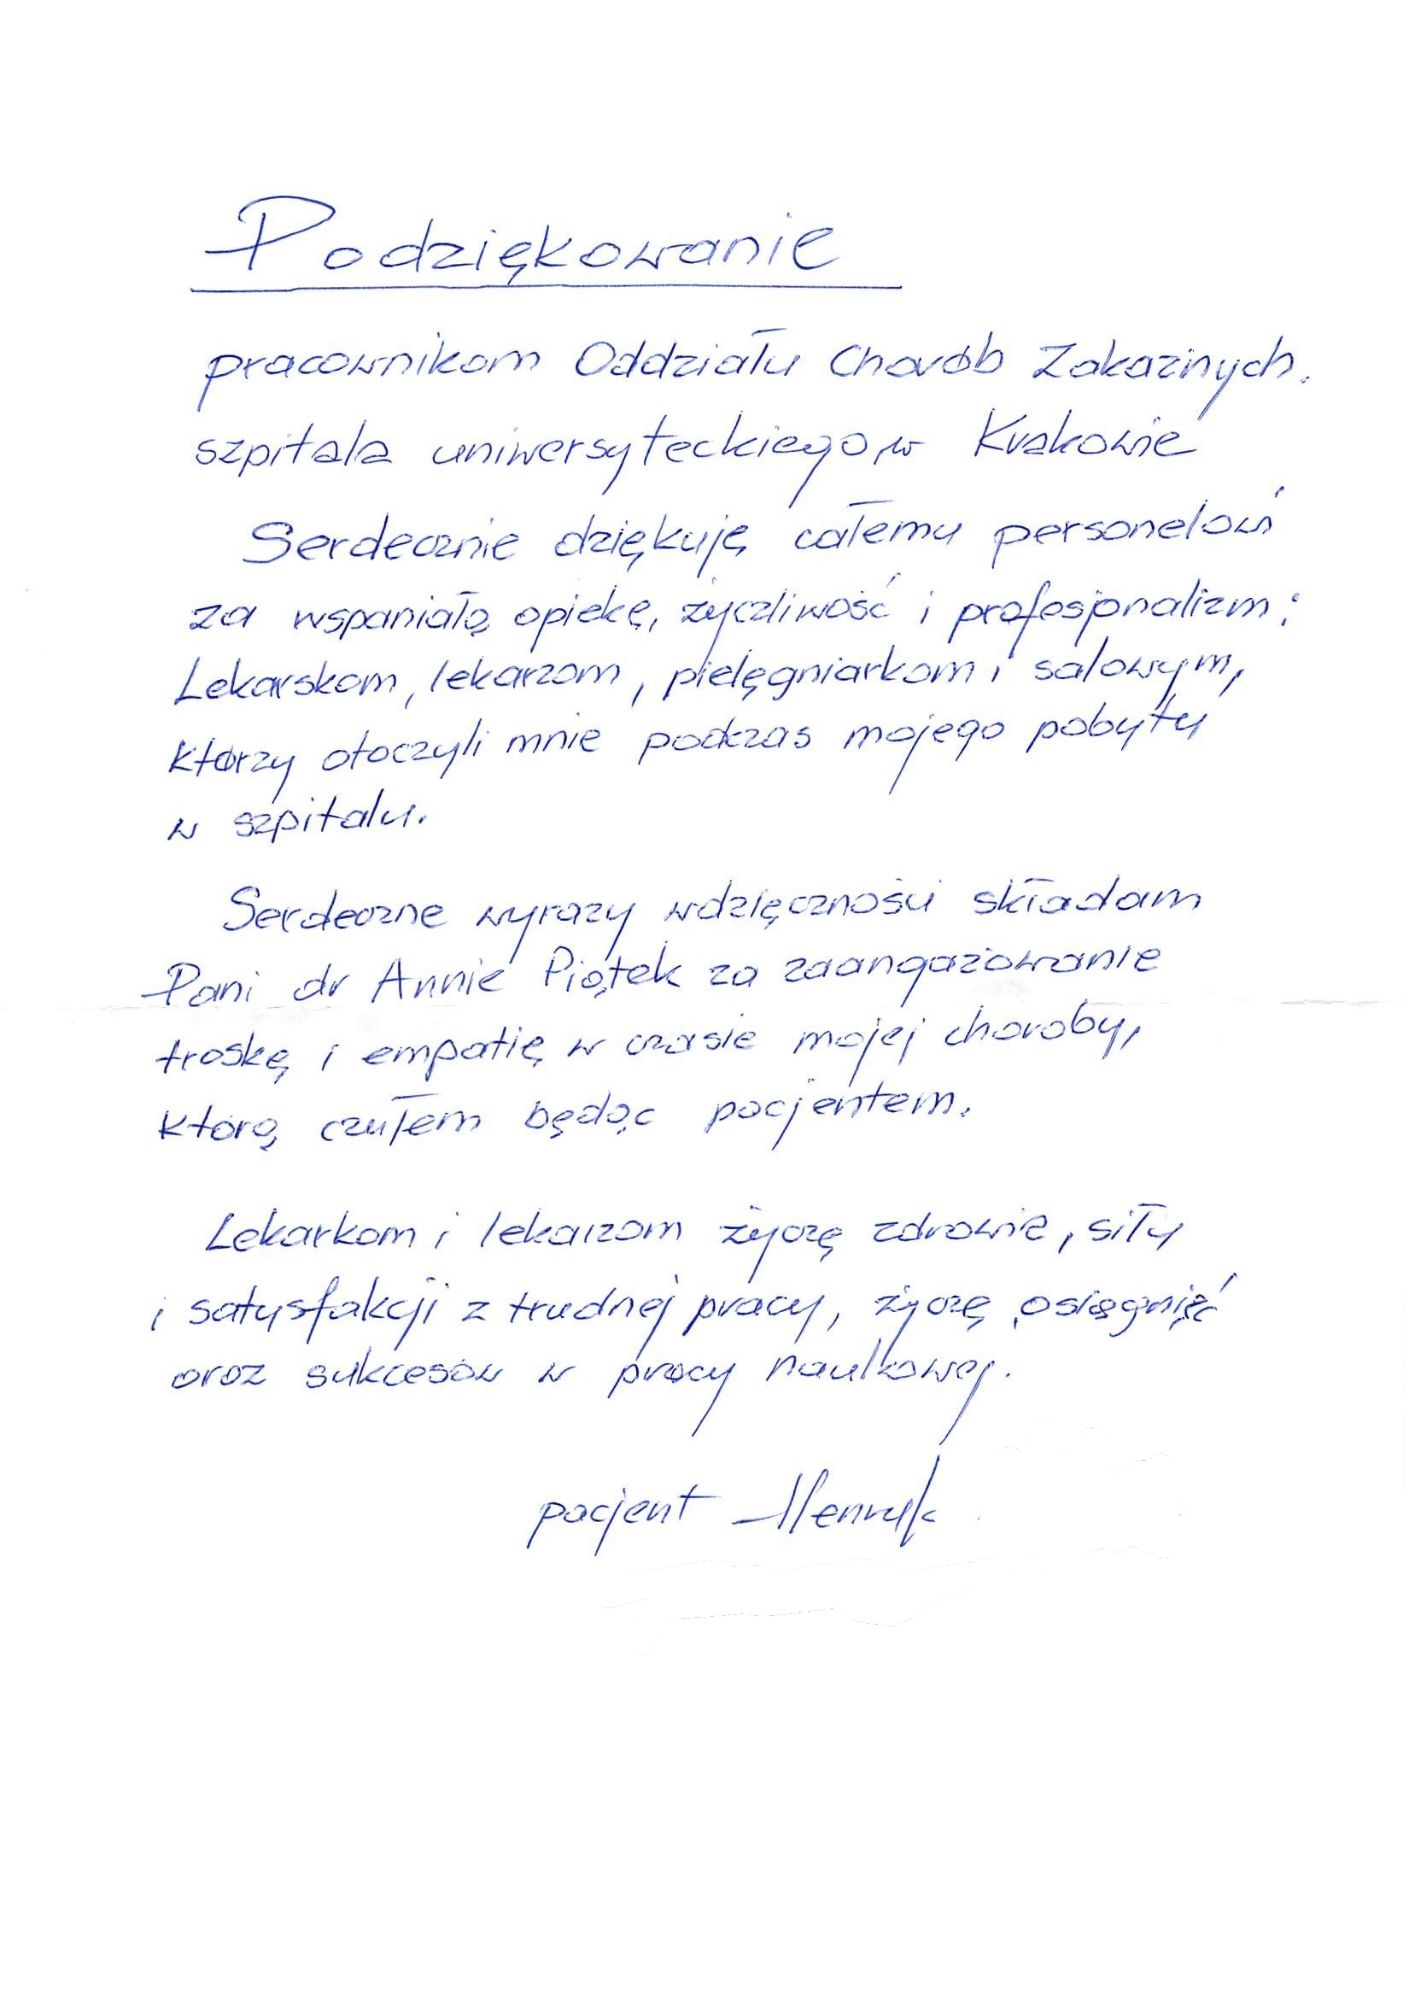 Podziękowanie
pracownikom Oddziału Chorób Zakaźnych.
szpitala uniwersyteckiego w Krakowie
Serdecznie dziękuję całemu personelowi
za wspaniałą opiekę, życzliwość i profesjonalizm:
Lekarskom, lekarzom, pielęgniarkom i salowym,
którzy otoczyli mnie podczas mojego pobytu
w szpitalu.
Serdeczne wyrazy wdzięczności składam
Pani dr Annie Piątek za zaangażowanie
troskę i empatię w czasie mojej choroby,
którą czułem będąc pacjentem.
Lekarkom i lekarzom życzę zdrowie, siły
i satysfakcji z trudnej pracy, życzę osięgnięć
oraz sukcesów w pracy naukowej.
pacjent Henryk